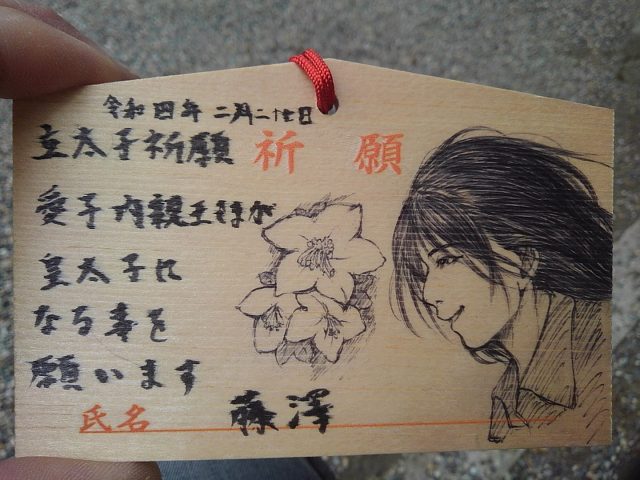 令和四年二月二十七日
立太子祈願
祈願
愛子内親王さまが
皇太子に
なる事を
願います
氏名 藤澤